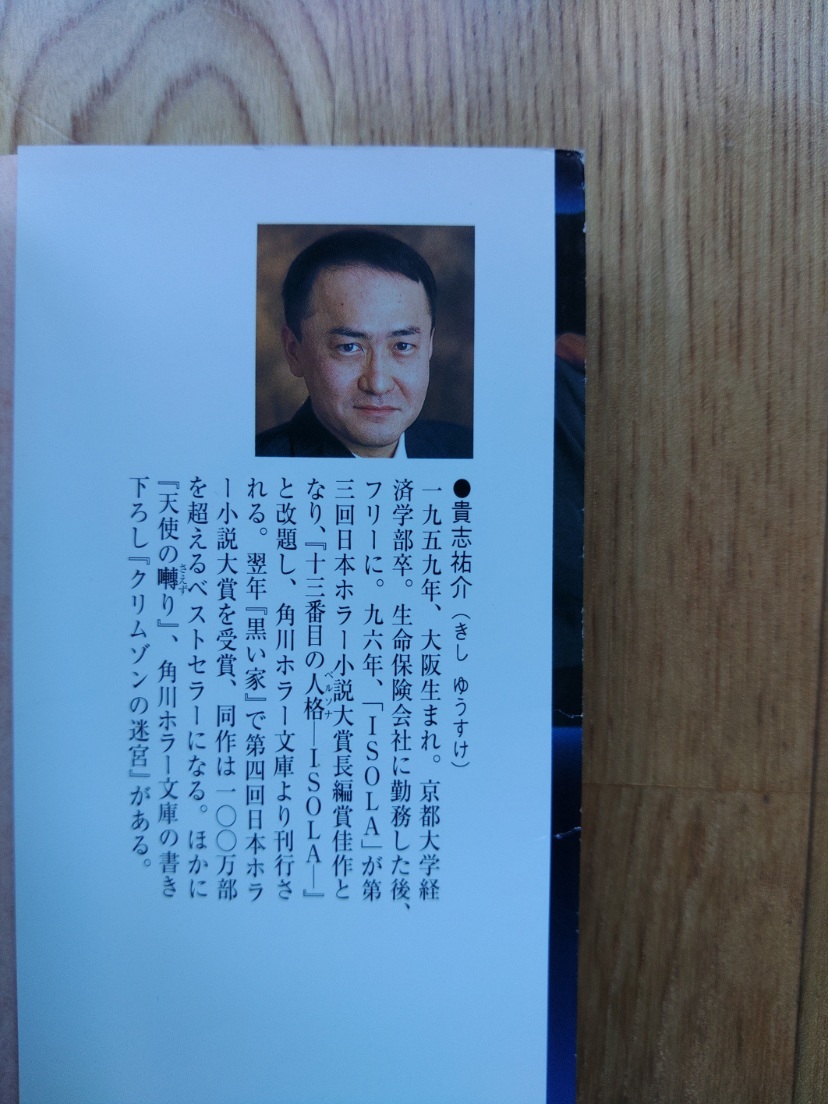 ●貴志祐介（きし ゆうすけ）
一九五九年、大阪生まれ。京都大学経
済学部卒。生命保険会社に勤務した後、
フリーに。九六年、「ISOLA」が第
三回日本ホラー小説大賞長編賞佳作と
なり、『十三番目の人格―ISOLA―』
ペルソナ
と改題し、角川ホラー文庫より刊行さ
れる。翌年『黒い家』で第四回日本ホラ
ー小説大賞を受賞、同作は一〇〇万部
を超えるベストセラーになる。ほかに
『天使の囀り』、角川ホラー文庫の書き
さえず
下ろし『クリムゾンの迷宮』がある。